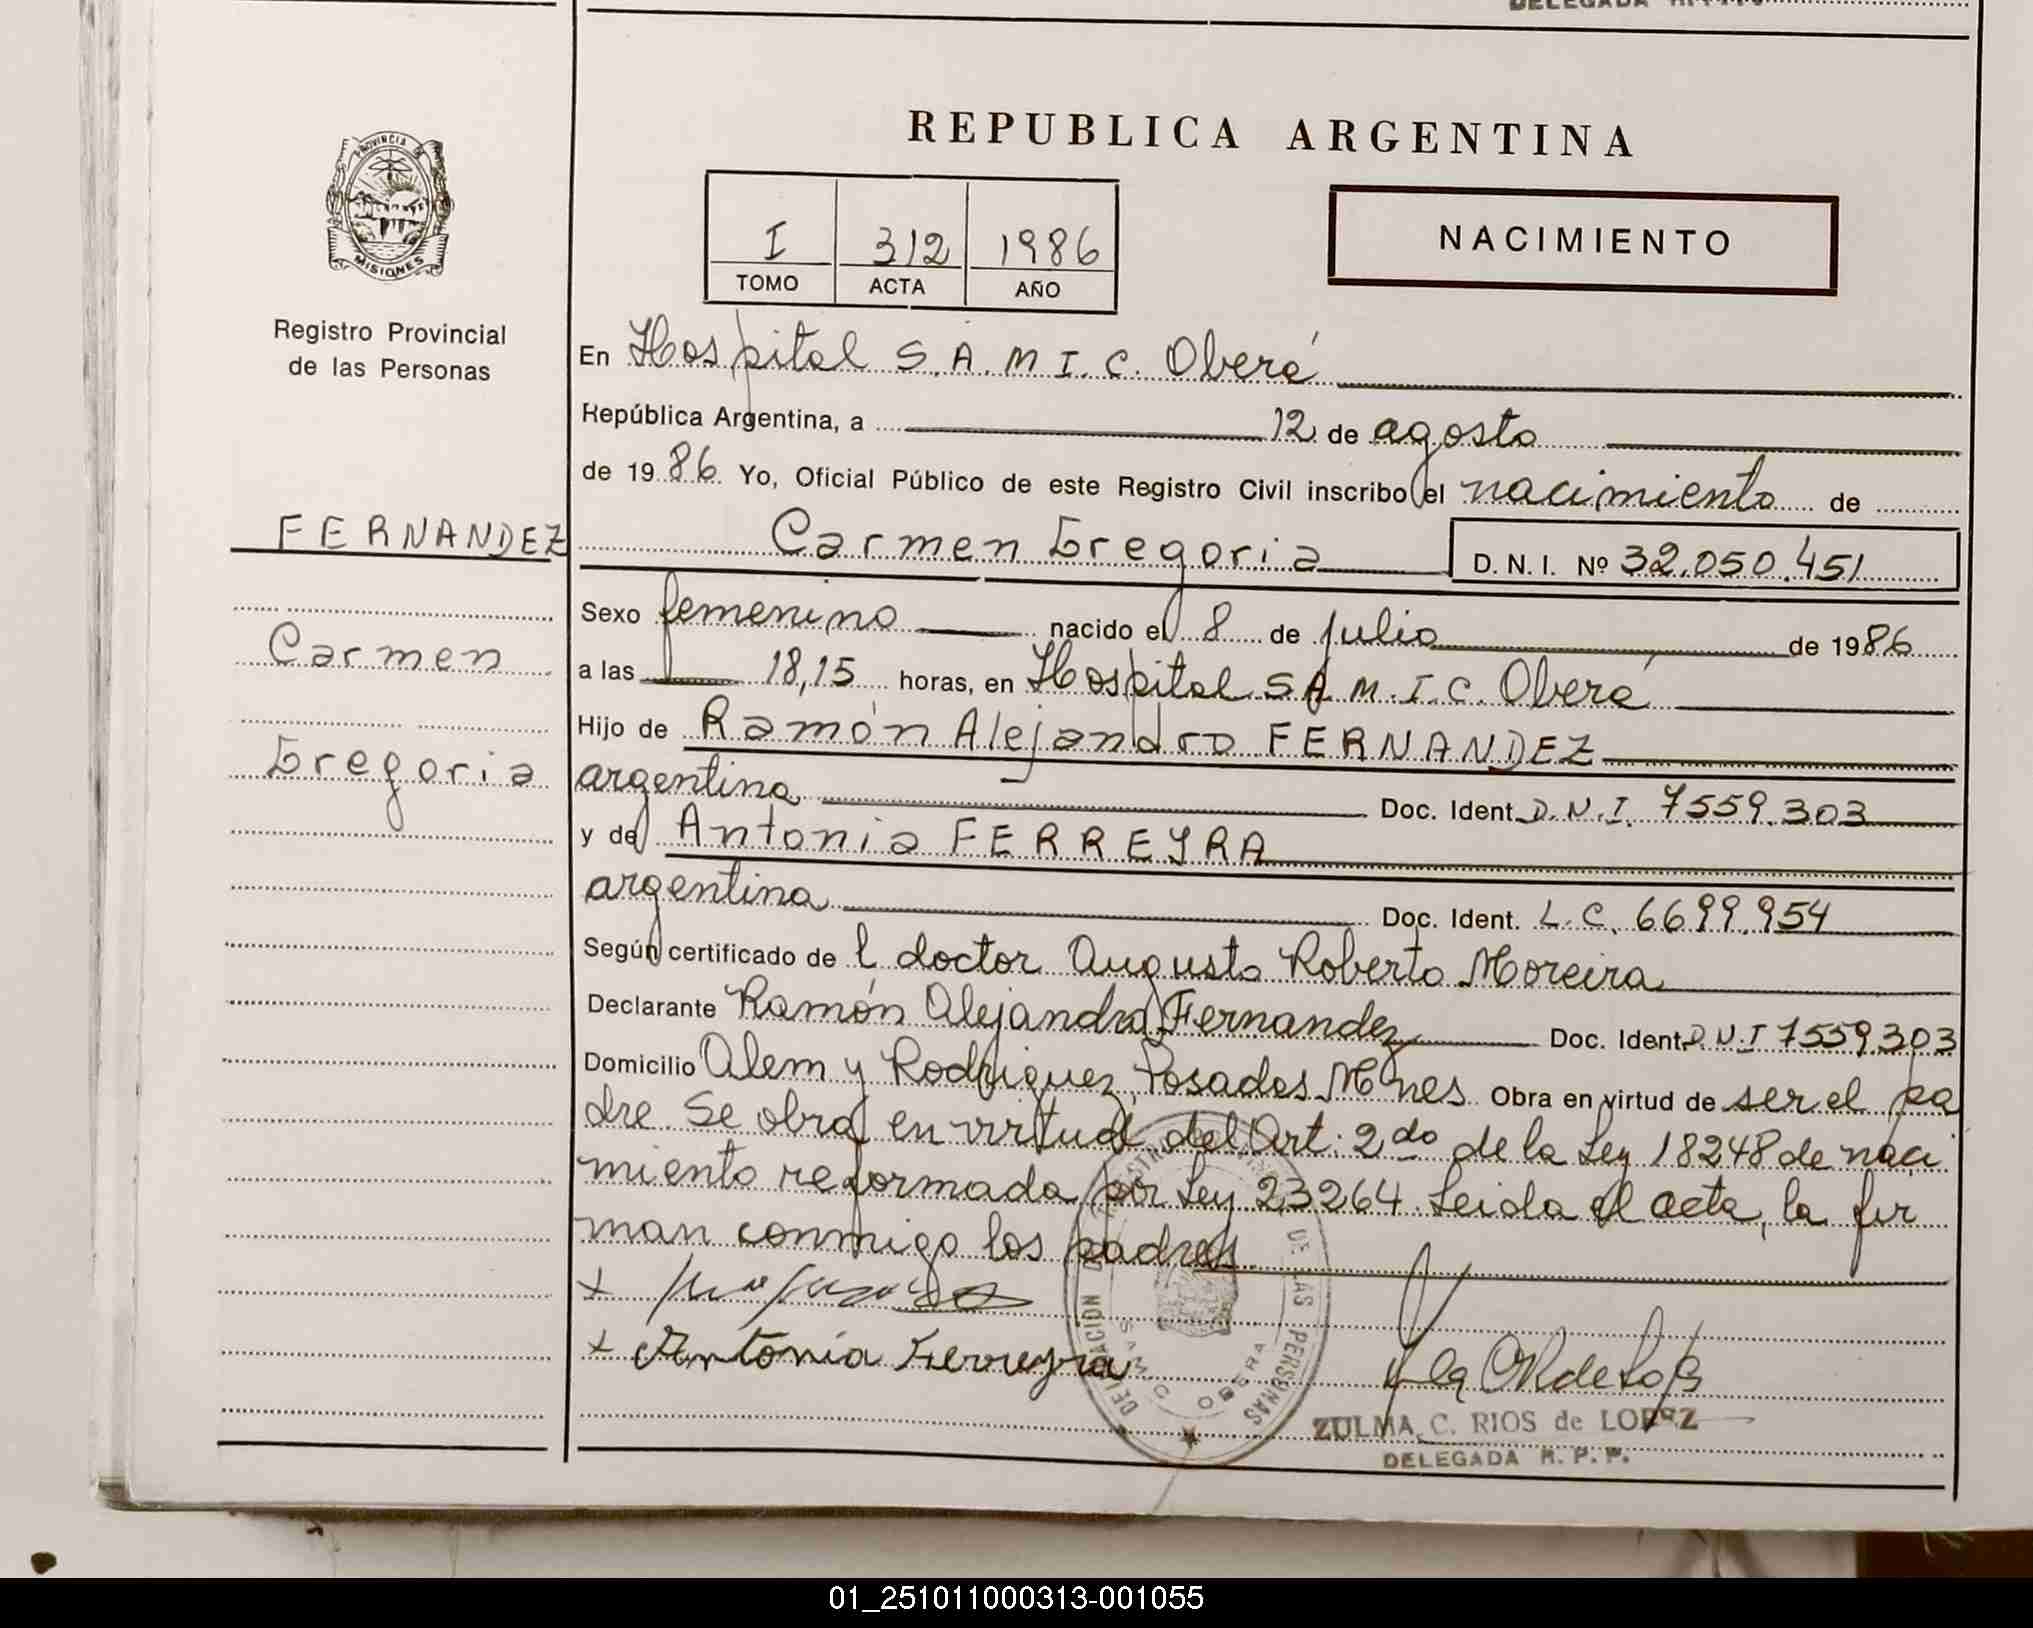 REPUBLICA ARGENTINA
PROVINCIA DE
MISIONES
Registro Provincial
de las Personas
I 312 1986
TOMO ACTA AÑO
NACIMIENTO
En Hospital S.A.M.I.C. Oberá
República Argentina, a 12 de agosto
de 1986 Yo, Oficial Público de este Registro Civil inscribo el nacimiento de
FERNANDEZ
Carmen Gregoria D.N.I. Nº 32.050.451
Sexo femenino nacido el 8 de julio de 1986
Carmen
a las 18,15 horas, en Hospital S.A.M.I.C. Oberá
Hijo de Ramón Alejandro FERNANDEZ
Gregoria
argentina Doc. Ident. D.N.I. 7559.303
y de Antonia FERREYRA
argentina Doc. Ident. L.C. 6699.954
Según certificado de l doctor Augusto Roberto Moreira
Declarante Ramón Alejandro Fernandez Doc. Ident. D.N.I 7559.303
Domicilio Alem y Rodriguez, Posadas, Mnes Obra en virtud de ser el pa
dre. Se obra en virtud del Art: 2do de la Ley 18248 de naci
miento reformada por Ley 23264. Leida el acta, la fir
man conmigo los padres.
x
x Antonia Ferreyra
DE LAS PERSONAS
SAMIC OBERA
ZULMA C. RIOS de LOPEZ
DELEGADA R.P.P.
01_251011000313-001055